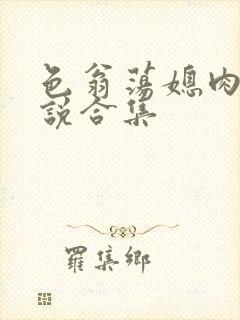 色翁荡媳肉
说合集
羅集鄉